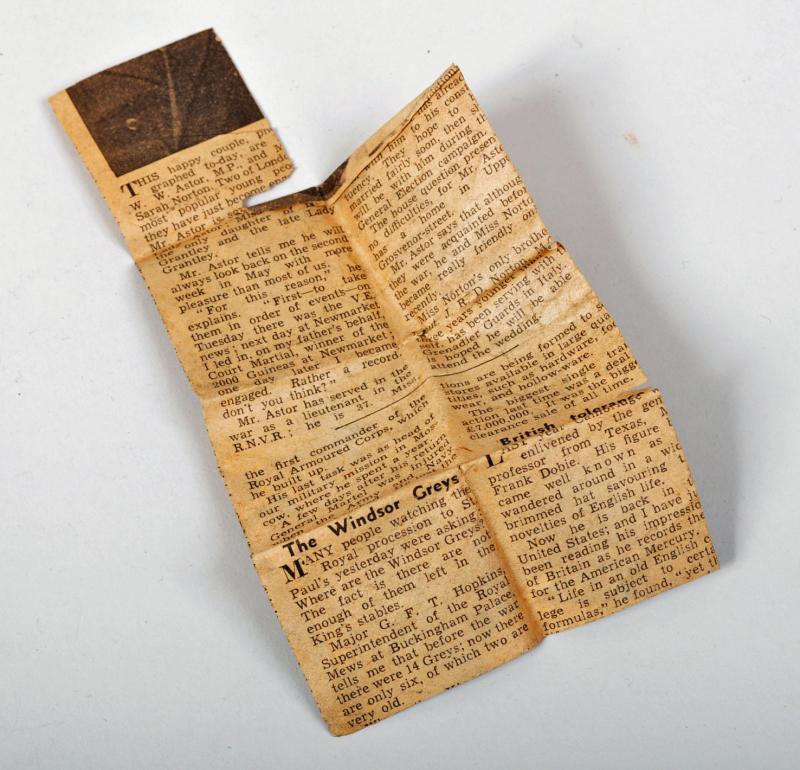 THIS happy couple,
graphed to-day, are
W. W. Astor, M.P., and
Sarah Norton. Two of
most popular young
they have just become
Mr. Astor
the only daughter of
Grantley and the late Lady
Grantley.
Mr. Astor tells me he will
always look back on the second
week in May with more
pleasure than most of us.
"For this reason," he
explains. "First—to take
them in order of events—on
Tuesday there was the V.E.
news; next day at Newmarket
I led in, on my father's behalf,
Court Martial, winner of the
2000 Guineas at Newmarket
one day later I became
engaged. Rather a record,
don't you think?"
Mr. Astor has served in the
war as a lieutenant in the
R.N.V.R.; he is 37. Miss
the first commander of the
Royal Armoured Corps, which
he built up.
His last task was as head of
our military mission in Mos-
cow, where he spent a year.
A few days after his return
General Martel was injured
The Windsor Greys
MANY people watching the
Royal procession to St.
Paul's yesterday were asking:
Where are the Windsor Greys?
The fact is there are not
enough of them left in the
King's stables.
Major G. F. T. Hopkins,
Superintendent of the Royal
Mews at Buckingham Palace,
tells me that before the war
there were 14 Greys; now there
are only six, of which two are
very old.
to his
They hope to
married fairly soon then
will be with him during
General Election campaign.
The house question presents
no difficulties, for Mr.
has a home in
Grosvenor-street.
Mr. Astor says that although
they were acquainted before
the war, he and Miss Norton
became really friendly
recently.
Miss Norton's only brother
years younger
has been serving with
Grenadier Guards in Italy.
is hoped he will be able
the wedding.
ions are being formed to
available in large
tities, such as hardware,
wear, and hollow-ware.
The biggest single
action last time was a deal
£7,000,000. It was the
clearance sale of all time.
British tolerance
enlivened by the
professor from Texas,
Frank Dobie. His figure
came well known as
wandered around in a
brimmed hat savouring
novelties of English life.
Now he is back in
United States; and I have
been reading his
of Britain as he records
for the American Mercury.
"Life in an old English
lege is subject to
formulas," he found, "yet